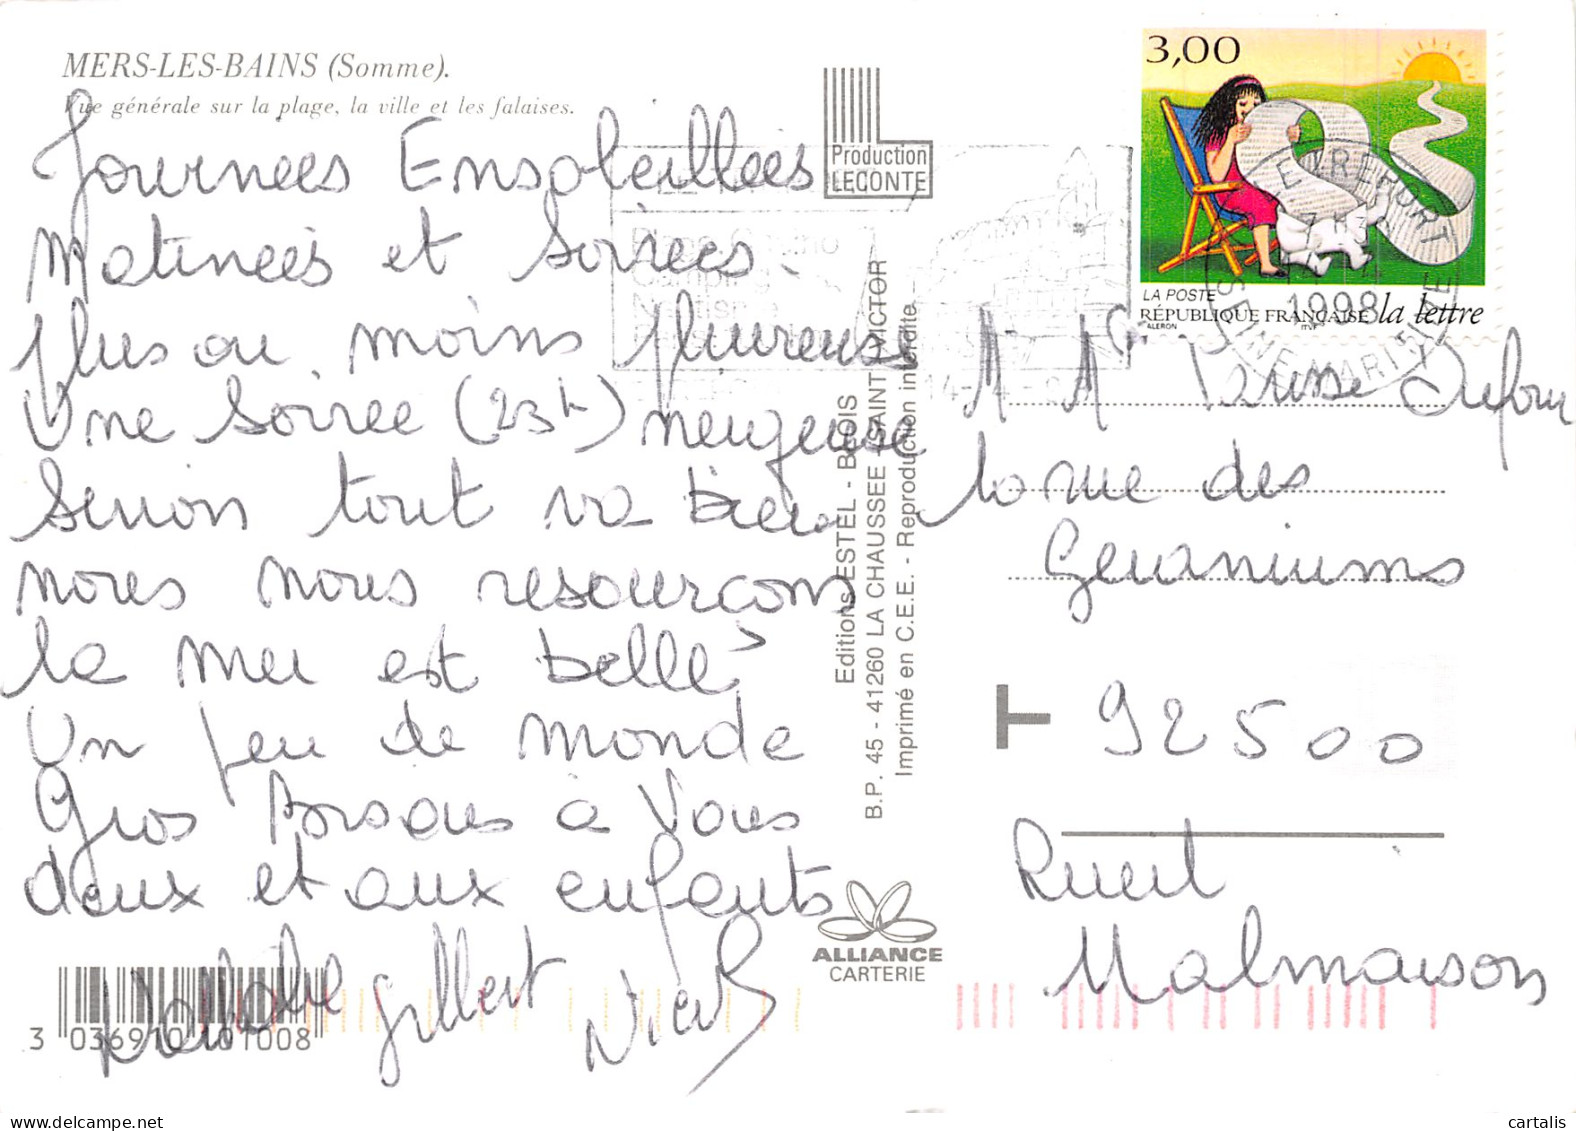 MERS-LES-BAINS (Somme).
Vue générale sur la plage, la ville et les falaises.
Journées Ensoleillées
Matinées et Soirées
plus ou moins pluvieuses
Une Soirée (23h) neigeuse
Sinon tout va bien
nous nous ressourçons
la mer est belle
Un peu de monde
Gros Bisous à Vous
deux et aux enfants
Gilbert Nicole
3 036910 101008
Production
LECONTE
Editions ESTEL - BLOIS
B.P. 45 - 41260 LA CHAUSSEE SAINT VICTOR
Imprimé en C.E.E. - Reproduction interdite
ALLIANCE
CARTERIE
3,00
LA POSTE
RÉPUBLIQUE FRANÇAISE la lettre
ALERON ITVF
1998
SEINE MARITIME
Camping
Dufour
10 rue des
Geraniums
T 92500
Rueil
Malmaison
cartalis